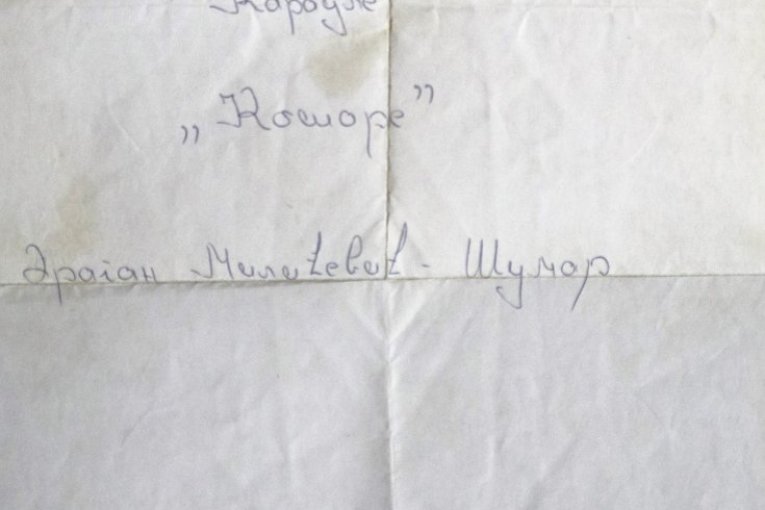 Карауле
„Кошоре”
Драган Милићевић - Шумар